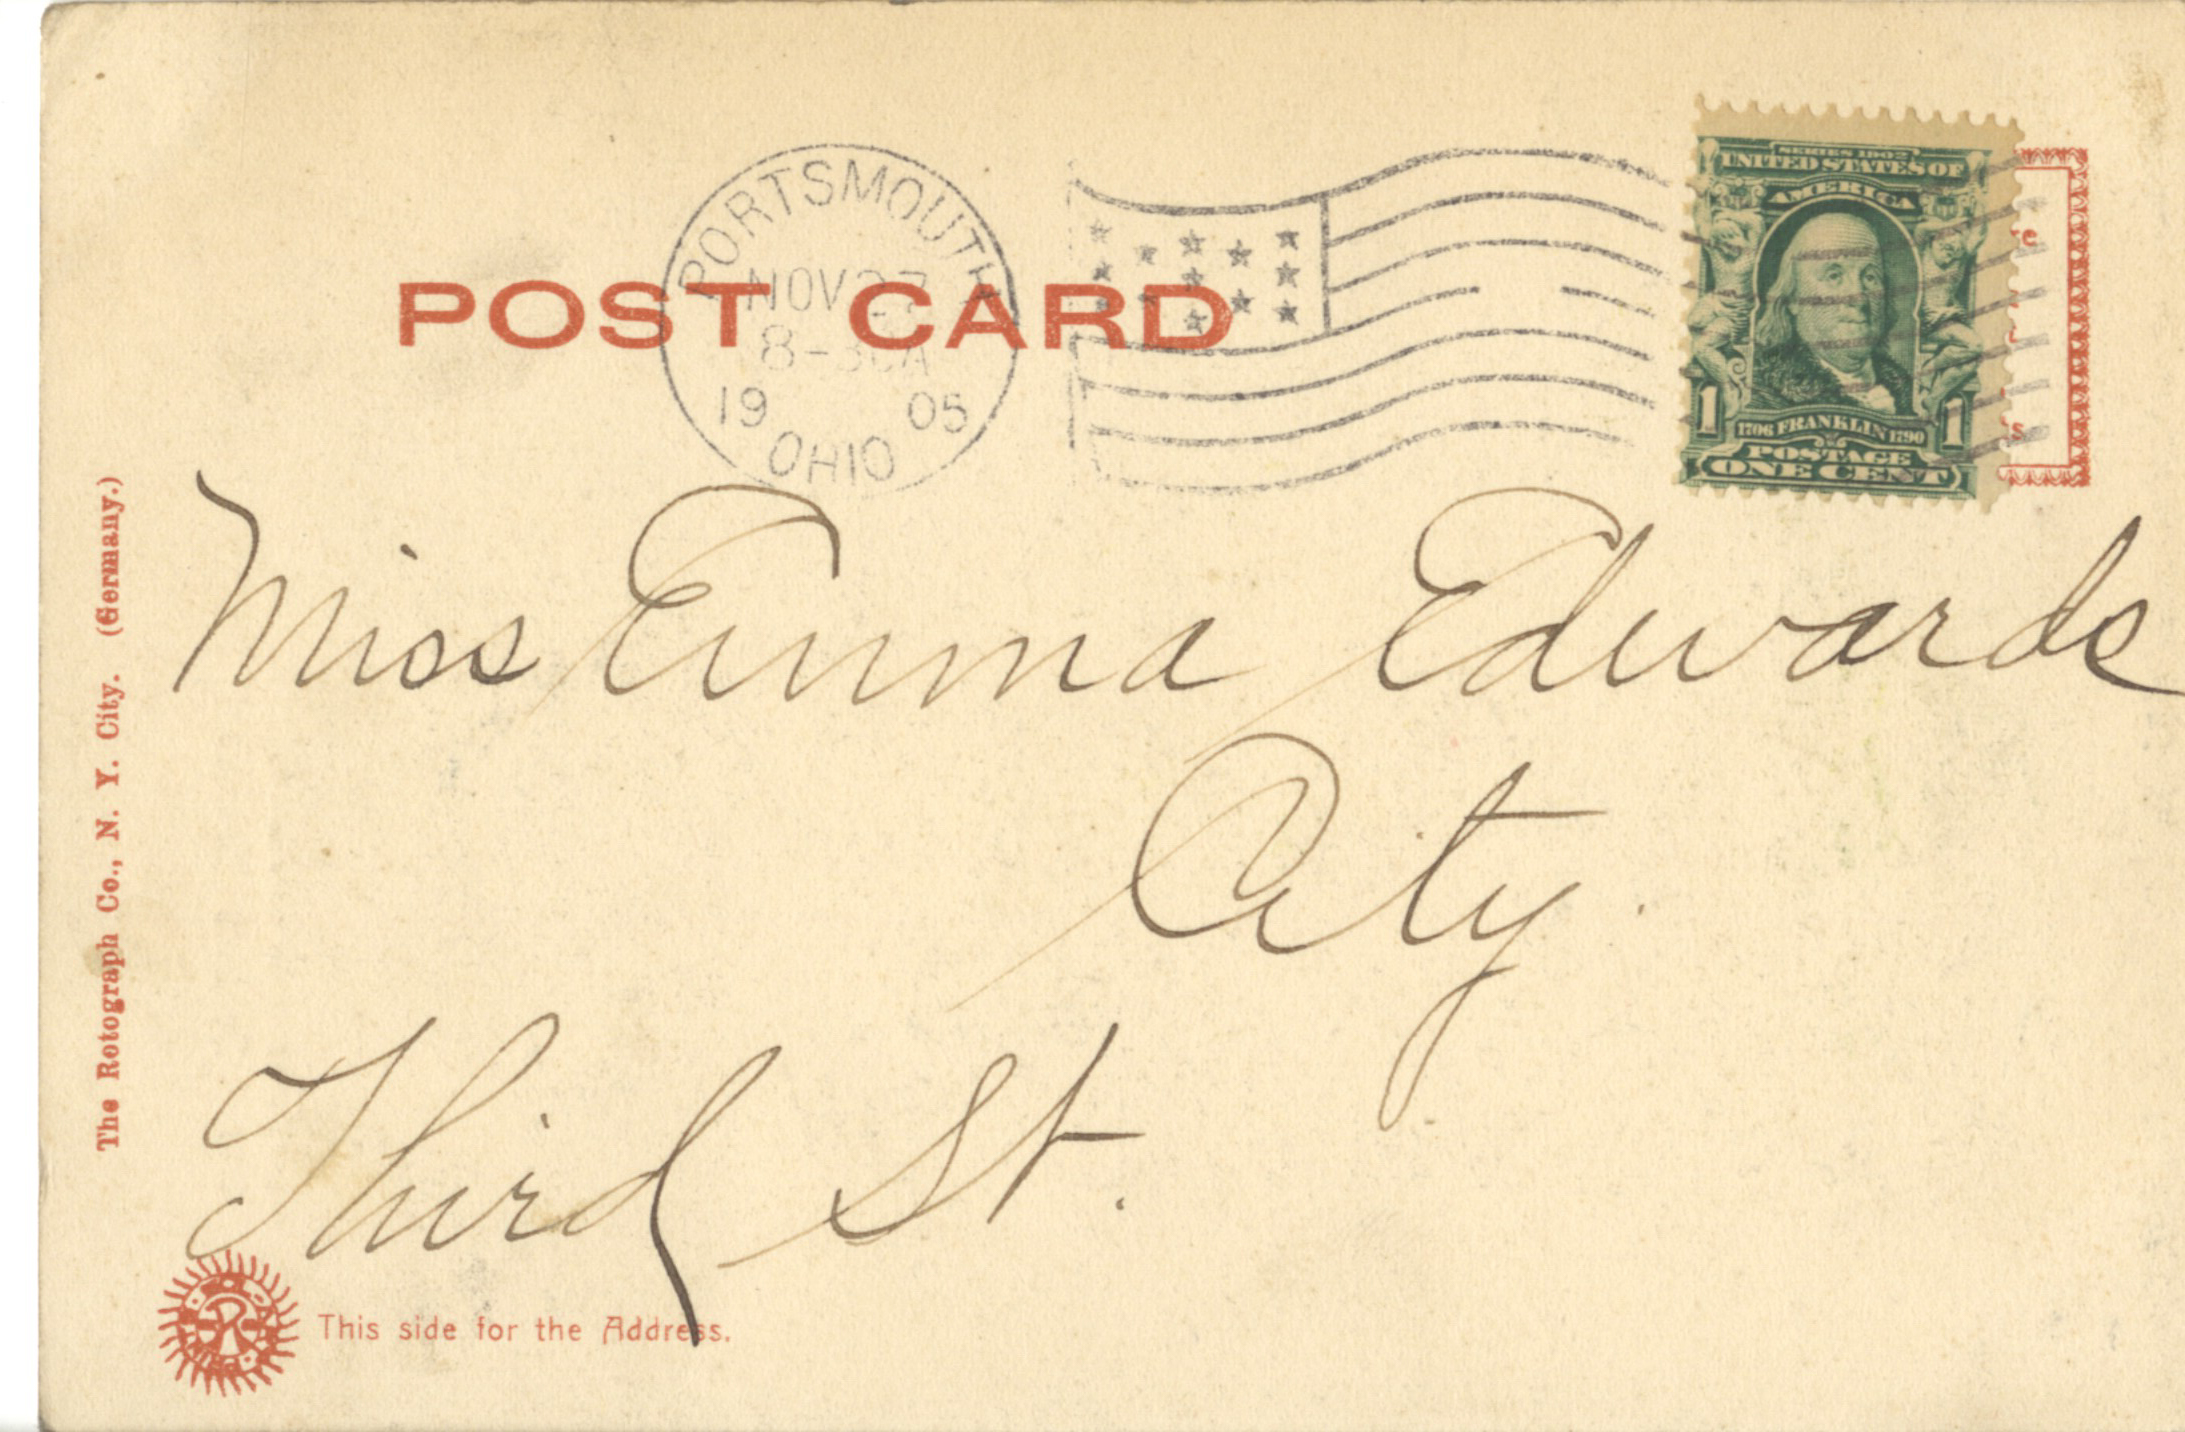 PORTSMOUTH
NOV 27
8-30A
19 05
OHIO
POST CARD
SERIES 1902
UNITED STATES OF
AMERICA
1 1
1706 FRANKLIN 1790
POSTAGE
ONE CENT
Miss Emma Edwards
City.
Third St.
The Rotograph Co., N. Y. City. (Germany.)
R
This side for the Address.